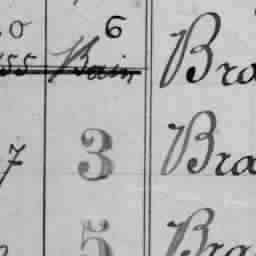 0 6
55 Bain Bra
7 3 Bra
5 Bra